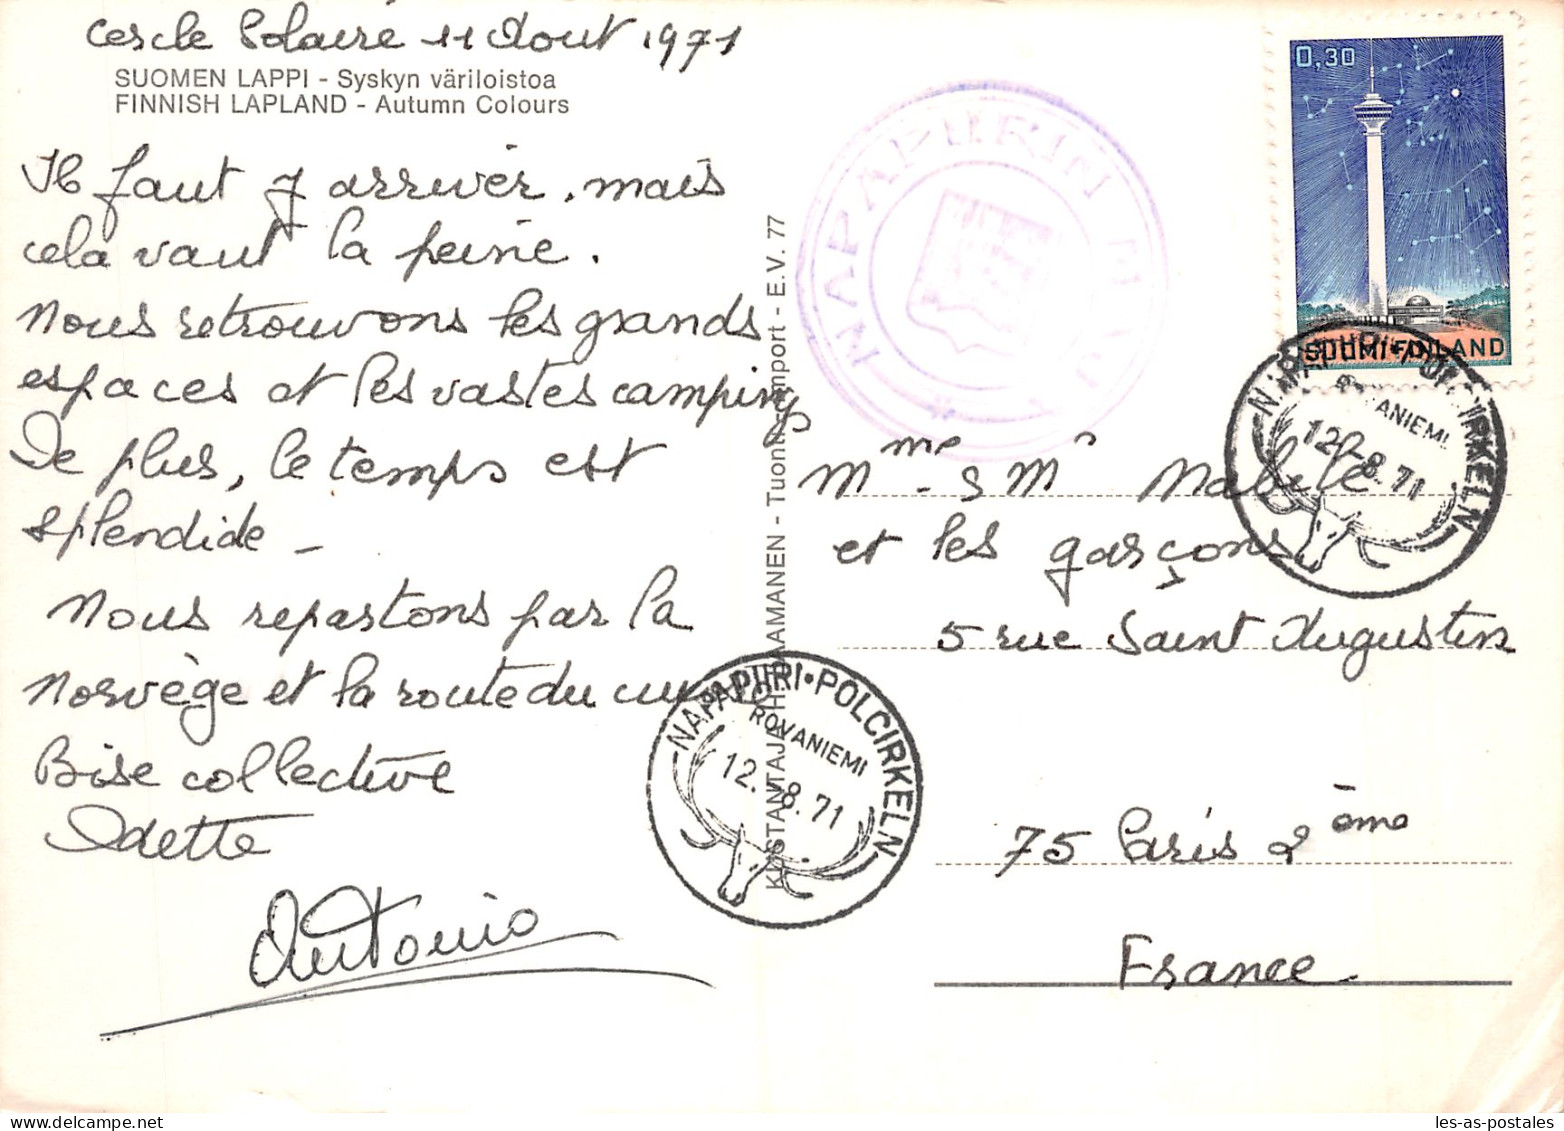 Cercle Polaire 11 Aout 1971
SUOMEN LAPPI - Syskyn väriloistoa
FINNISH LAPLAND - Autumn Colours
Il faut y arriver, mais
cela vaut la peine.
Nous retrouvons les grands
espaces et les vastes camping
De plus, le temps est
splendide -
Nous repartons par la
Norvège et la route du
Bise collective
Odette
Antonio
KUSTANTAJA H. - Tuonti-Import - E.V. 77
NAPAPIIRIN
0,30
SUOMI-FINLAND
NAPAPIIRI • POLCIRKELN
ROVANIEMI
12.-8.71
Mme & Mr
et les garçons
5 rue Saint Augustin
75 Paris 2ème
France.
NAPAPIIRI • POLCIRKELN
ROVANIEMI
12.-8.71
les-as-postales